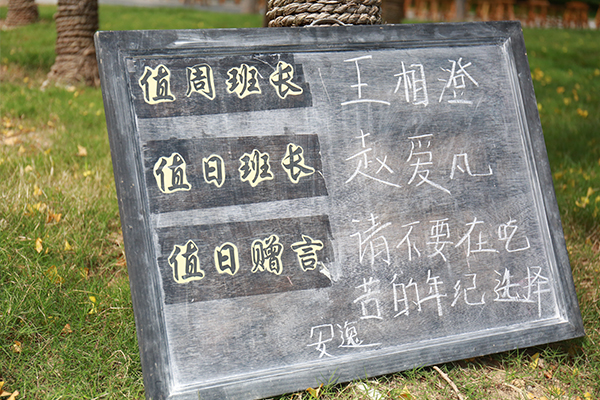 值周班长 王相澄
值日班长 赵爱凡
值日赠言 请不要在吃
苦的年纪选择
安逸